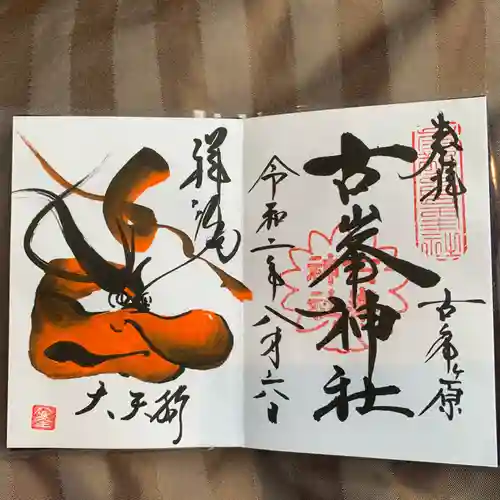 奉拝
古峯ヶ原
古峯神社
令和二年八月六日
祥龍
大天狗